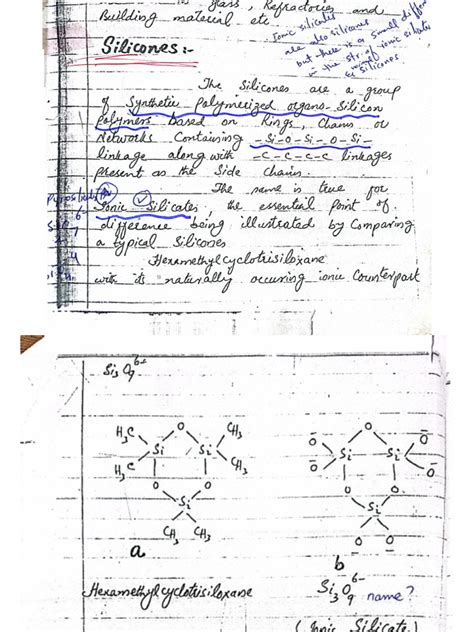 glass, Refractories and
Building material etc.
Ionic silicates
are also silicones
but there is a small differ
in the str. of ionic silicates
& silicones
Silicones:-
The Silicones are a group
of Synthetic polymerized organo-Silicon
polymers based on Rings, Chains or
Networks Containing -Si-O-Si-O-Si-
linkage along with -C-C-C-C linkages
present as the Side Chain.
The name is true for
Ionic Silicates, the essential point of
difference being illustrated by Comparing
a typical Silicones
Hexamethylcyclotrisiloxane
with its naturally occuring ionic Counterpart
Si3O9 6-
H3C O CH3
Si Si
H3C CH3
O O
Si
CH3 CH3
a
O- O O-
Si Si
O- O-
O O
Si
O- O-
b
Hexamethylcyclotrisiloxane
Si3O9 6- name?
(Ionic Silicate)